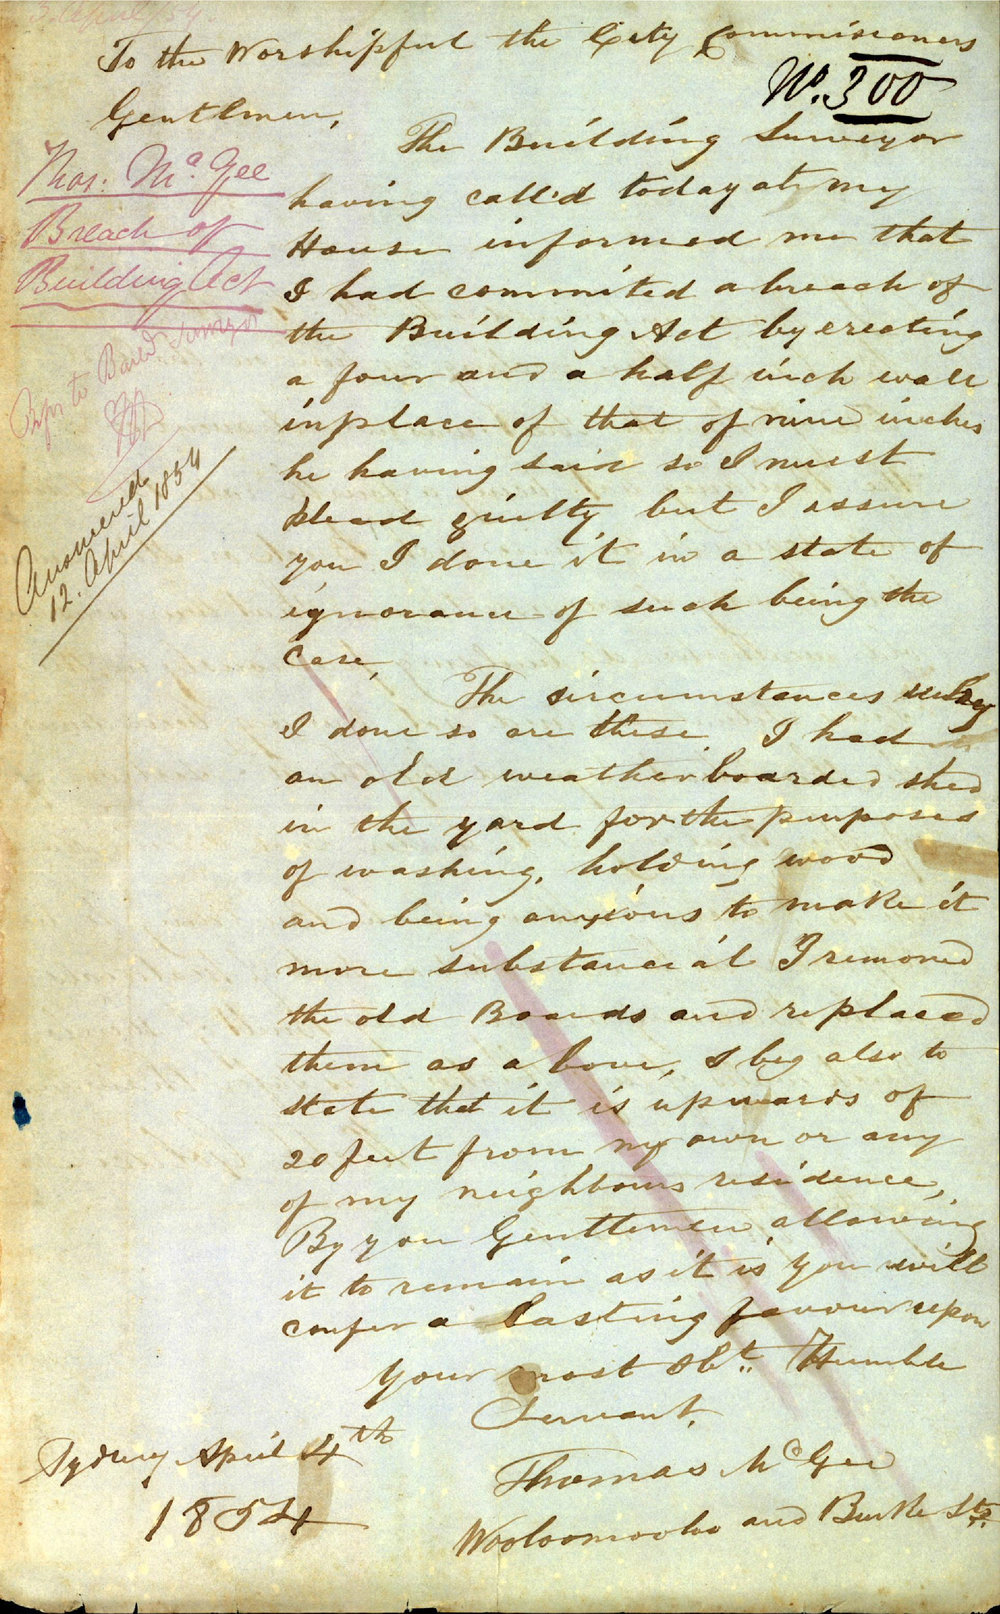 3. April /54.
To the Worshipful the City Commisioners
No. 300
Gentlmen,
The Building Surveyor
having call'd today at my
House informed me that
I had commited a breach of
the Building Act by erecting
a four and a half inch wall
inplace of that of nine inches
he having said so I must
plead guilty but I assure
you I done it in a state of
ignorance of such being the
case,
The circumstances why
I done so are these I had
an old weatherboarded shed
in the yard for the purposes
of washing, holding wood
and being anxious to make it
more substancial I removed
the old Boards and replaced
them as above, I beg also to
state that it is upwards of
20 feet from my own or any
of my neighbours residence,
By you Gentlemen allowing
it to remain as it is you will
confer a lasting favour upon
your most Obt. Humble
Servant,
Thomas McGee
Wooloomooloo and Burke Sts.
Sydney April 4th
1854
Thos. McGee
Breach of
Building Act
Refer to Surveyor
Answered
12. April 1854